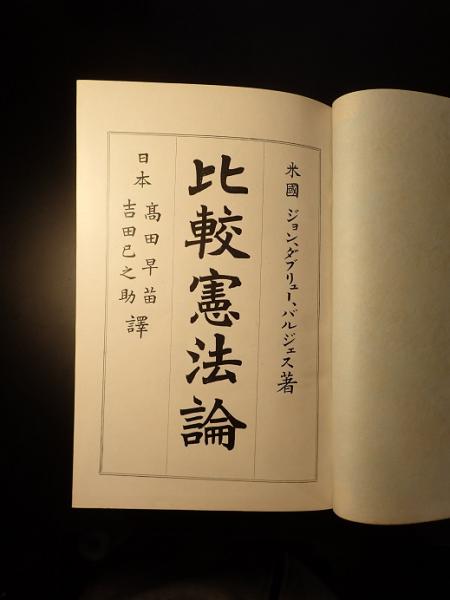 米國 ジョン、ダブリュー、バルジェス著
比較憲法論
日本 髙田早苗
吉田巳之助 譯